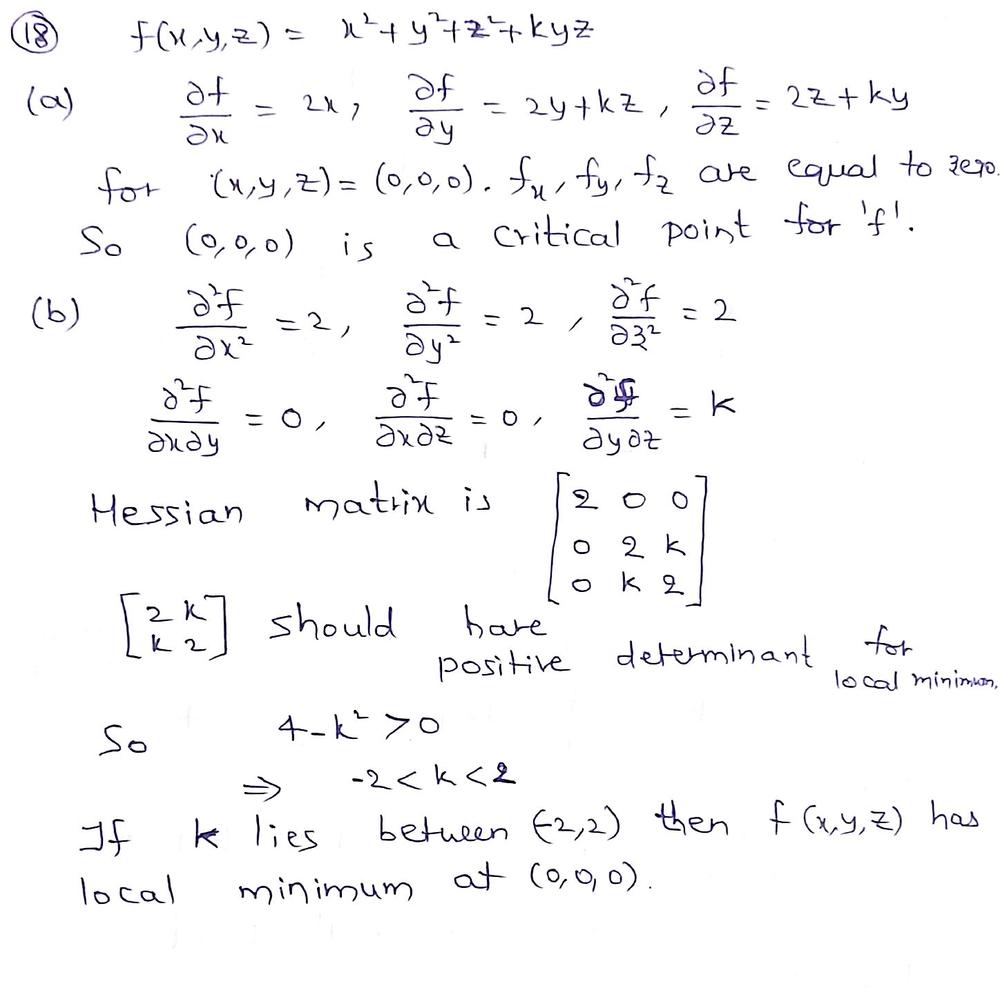 (18) f(x,y,z) = x²+y²+z²+kyz
(a) ∂f/∂x = 2x, ∂f/∂y = 2y+kz, ∂f/∂z = 2z+ky
for (x,y,z) = (0,0,0). fx, fy, fz are equal to zero.
So (0,0,0) is a critical point for 'f'.
(b) ∂²f/∂x² = 2, ∂²f/∂y² = 2, ∂²f/∂z² = 2
∂²f/∂x∂y = 0, ∂²f/∂x∂z = 0, ∂²f/∂y∂z = k
Hessian matrix is [2 0 0
0 2 k
0 k 2]
[2 k
k 2] should have positive determinant for local minimum.
So 4-k² > 0
⇒ -2 < k < 2
If k lies between (-2,2) then f(x,y,z) has
local minimum at (0,0,0).